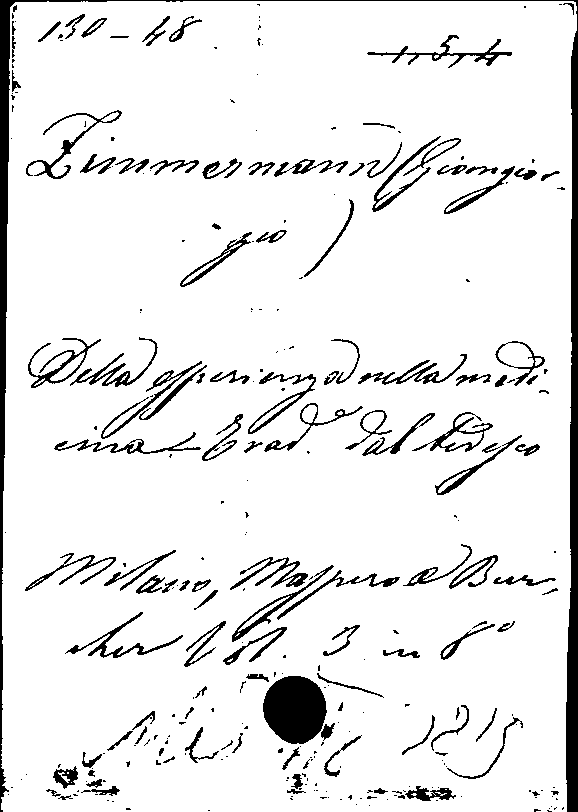 130-48
1,5,4
Zimmermann (Giangior-
gio)
Della esperienza nella medi-
cina - Trad.e dal tedesco
Milano, Maspero e Bur-
cher Vol. 3 in 8°
1815